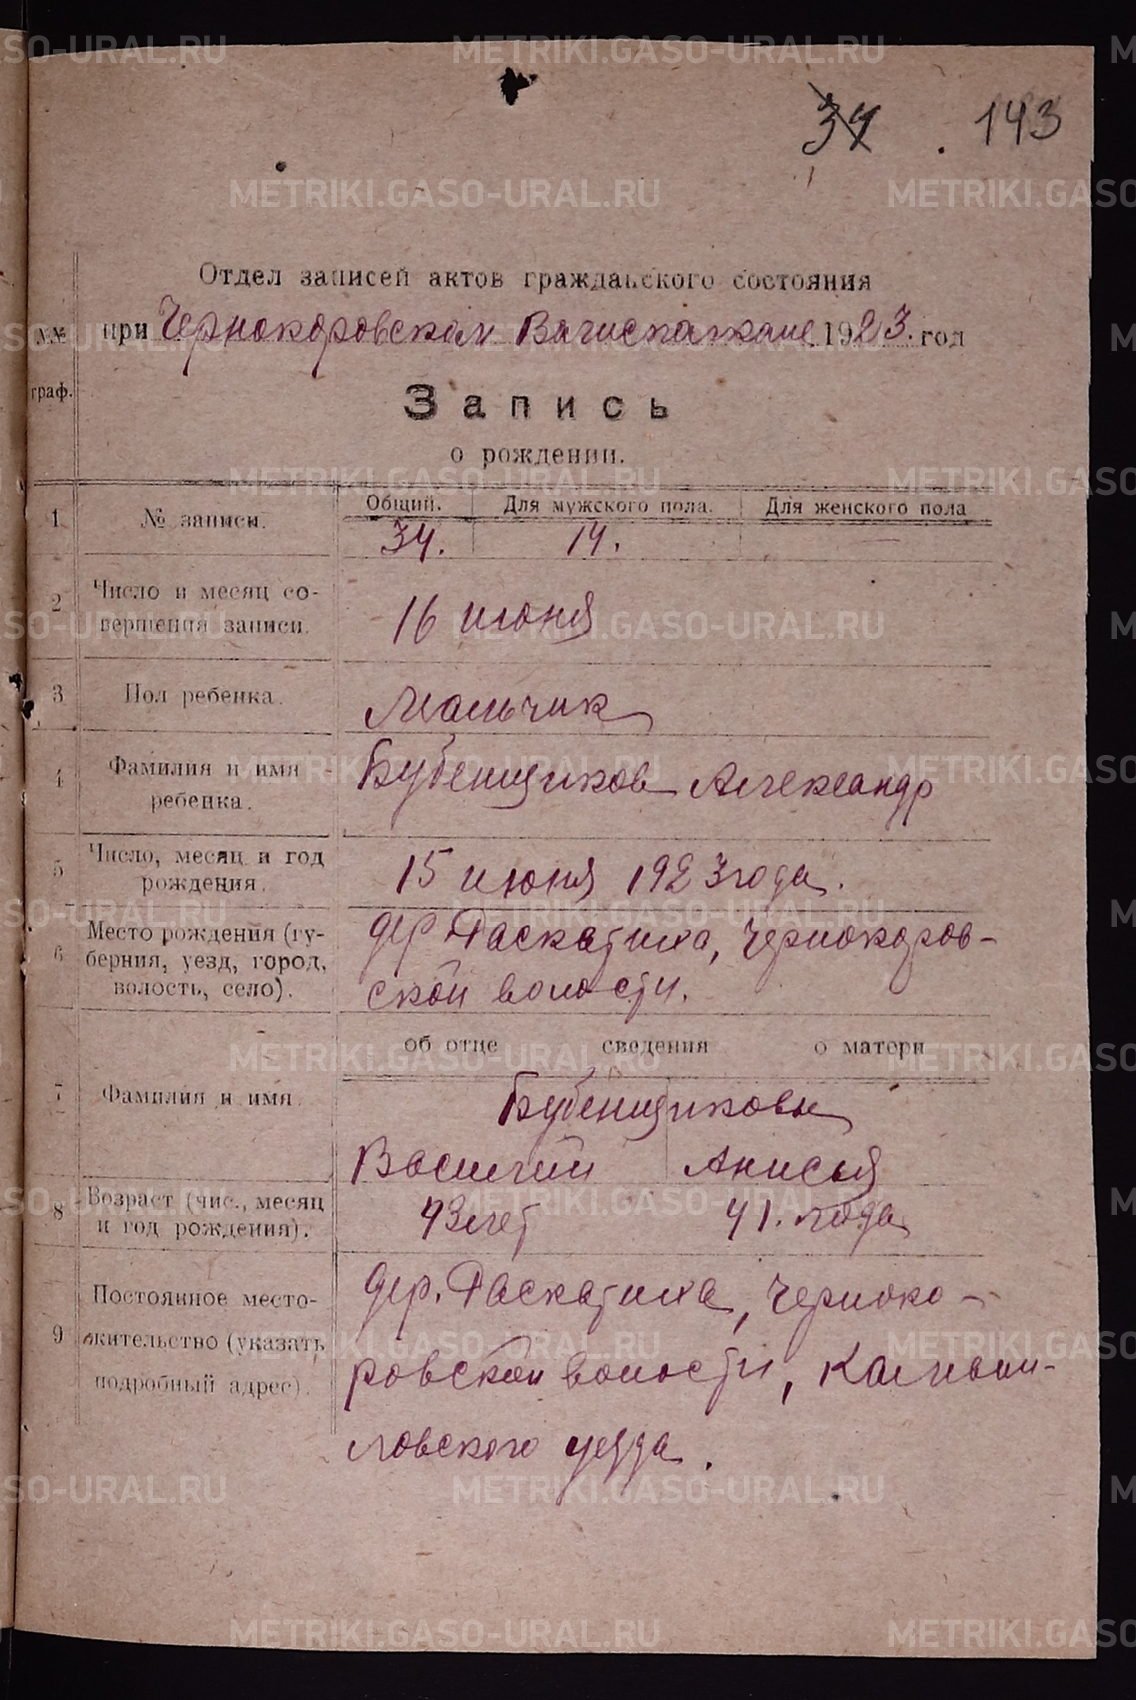 34 . 143
Отдел записей актов гражданского состояния
при Чернокоровском Волисполкоме 1923. год
№№
граф.
Запись
о рождении.
1 № записи. Общий. Для мужского пола. Для женского пола
34. 14. —
2 Число и месяц со-
вершения записи. 16 июня
3 Пол ребенка. Мальчик
4 Фамилия и имя
ребенка. Бубенщиков Александр
5 Число, месяц и год
рождения. 15 июня 1923 года.
6 Место рождения (гу-
берния, уезд, город,
волость, село). дер. Раскатиха, Чернокоров-
ской волости.
об отце сведения о матери
7 Фамилия и имя. Бубенщиковы
Василий Анисья
8 Возраст (чис., месяц
и год рождения). 43 лет 41. года
9 Постоянное место-
жительство (указать
подробный адрес). дер. Раскатиха, Черноко-
ровской волости, Камыш-
ловского уезда.
METRIKI.GASO-URAL.RU